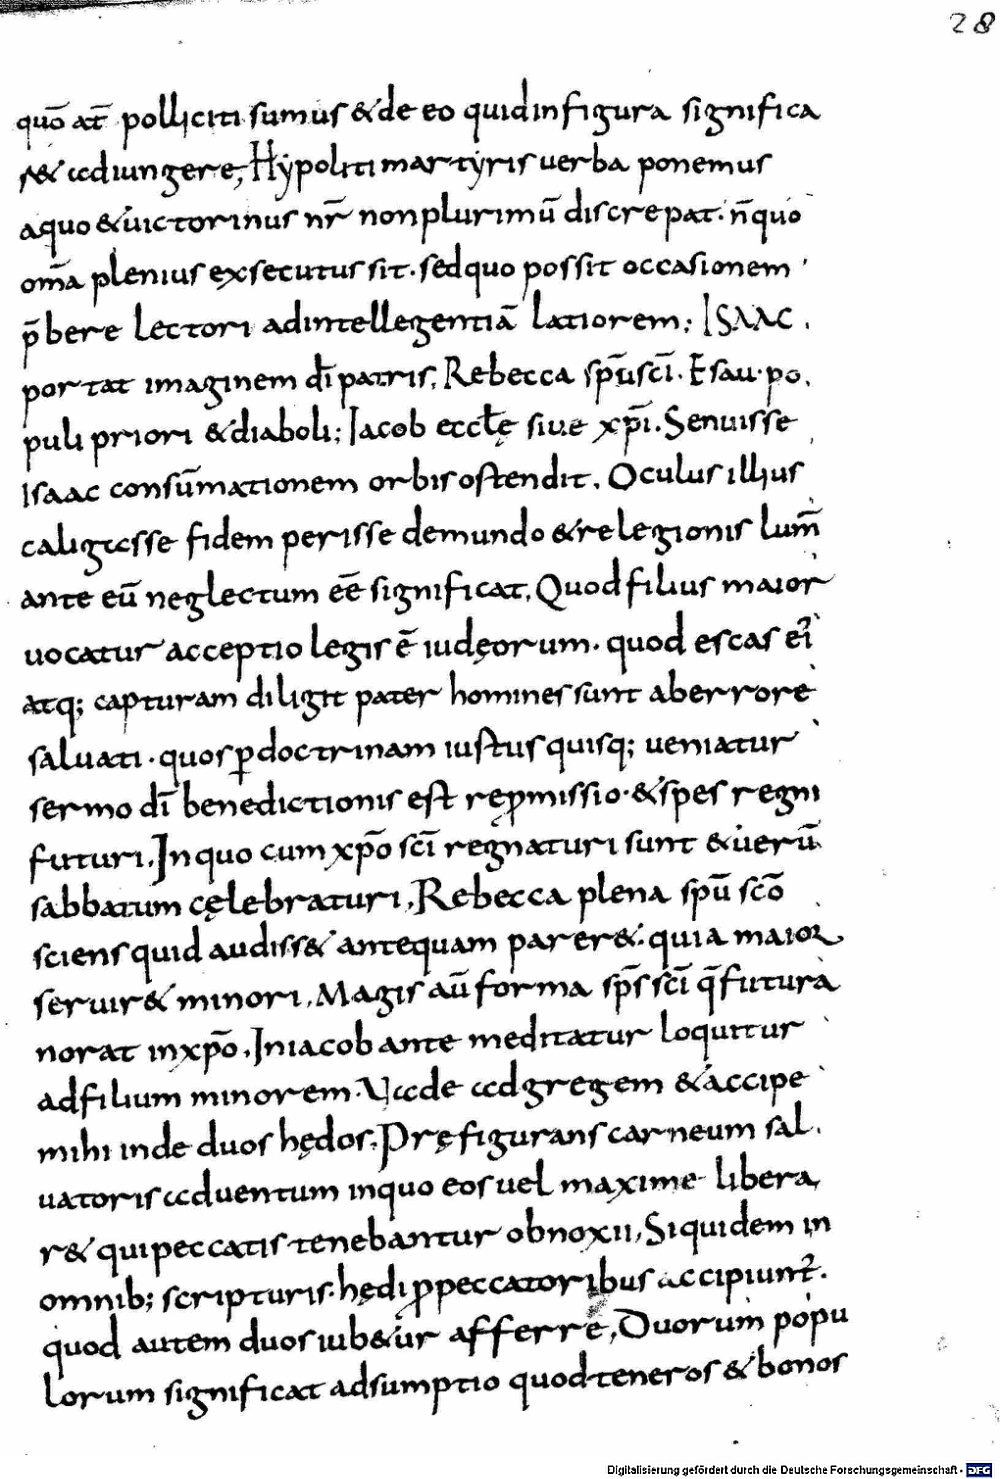 28
quō at̄ polliciti sumus & de eo quid in figura significa
r& adiungere; Hẏpoliti martẏris uerba ponemus
a quo & uictorinus nr̄ non plurimū discrepat. n̄ quo
om̄a plenius exsecutus sit. sed quo possit occasionem
p̄bere lectori ad intellegentiā latiorem; ISAAC.
portat imaginem dī patris. Rebecca sp̄u sc̄i. Esau. po.
puli priori & diaboli; Iacob eccłę siue xp̄i. Senuisse
Isaac consūmationem orbis ostendit. Oculus illius
caligasse fidem perisse de mundo & relegionis lum̄
ante eū neglectum eē significat. Quod filius maior
uocatur acceptio legis ē iudęorum. quod escas ei'
atq; capturam diligit pater homines sunt ab errore
saluati. quos ꝑ doctrinam iustus quisq; ueniatur
sermo dī benedictionis est reꝓmissio. & spes regni
futuri. In quo cum xp̄o sc̄i regnaturi sunt & uerū
sabbatum cęlebraturi. Rebecca plena sp̄u sc̄o
sciens quid audiss& antequam parer&. quia maior
seruir& minori. Magis aū forma sp̄s sc̄i q̄ futura
norat in xp̄o. In iacob ante meditatur loquitur
ad filium minorem. Uade ad gregem & accipe
mihi inde duos hędos. Pręfigurans carneum sal.
uatoris aduentum in quo eos uel maxime libera
r& qui peccatis tenebantur obnoxii. Siquidem in
omnib; scripturis. hędi ꝓ peccatoribus accipiunt'.
quod autem duos iub&ur afferre. Duorum popu
lorum significat adsumptio quod teneros & bonos
Digitalisierung gefördert durch die Deutsche Forschungsgemeinschaft - DFG